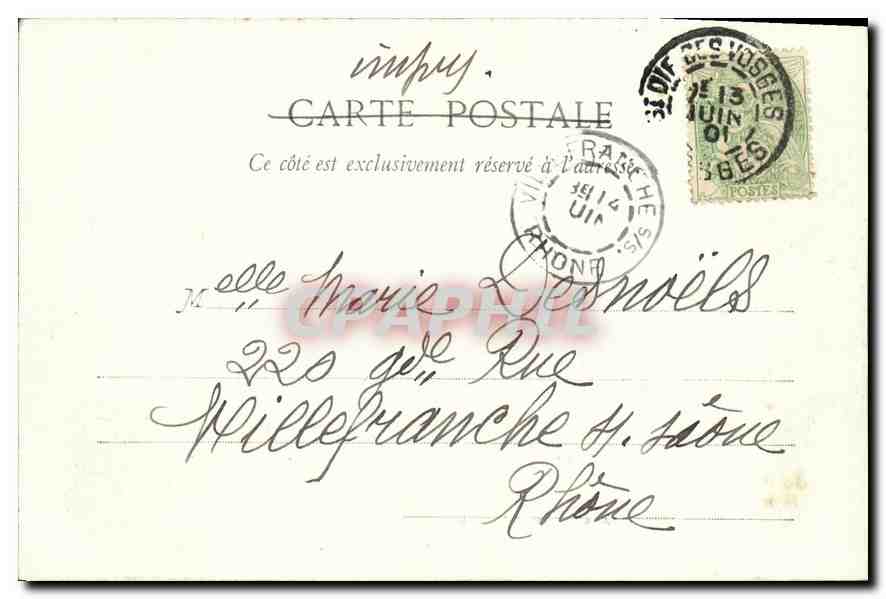 impés.
CARTE POSTALE
Ce côté est exclusivement réservé à l'adresse
St DIE DES VOSGES
7E 13
JUIN
01
VOSGES
POSTES
VILLEFRANCHE S/S.
14
JUIN
RHONE
Melle Marie Desnoëls
220 gde Rue
Villefranche s/. saône
Rhône
CPAPHIL